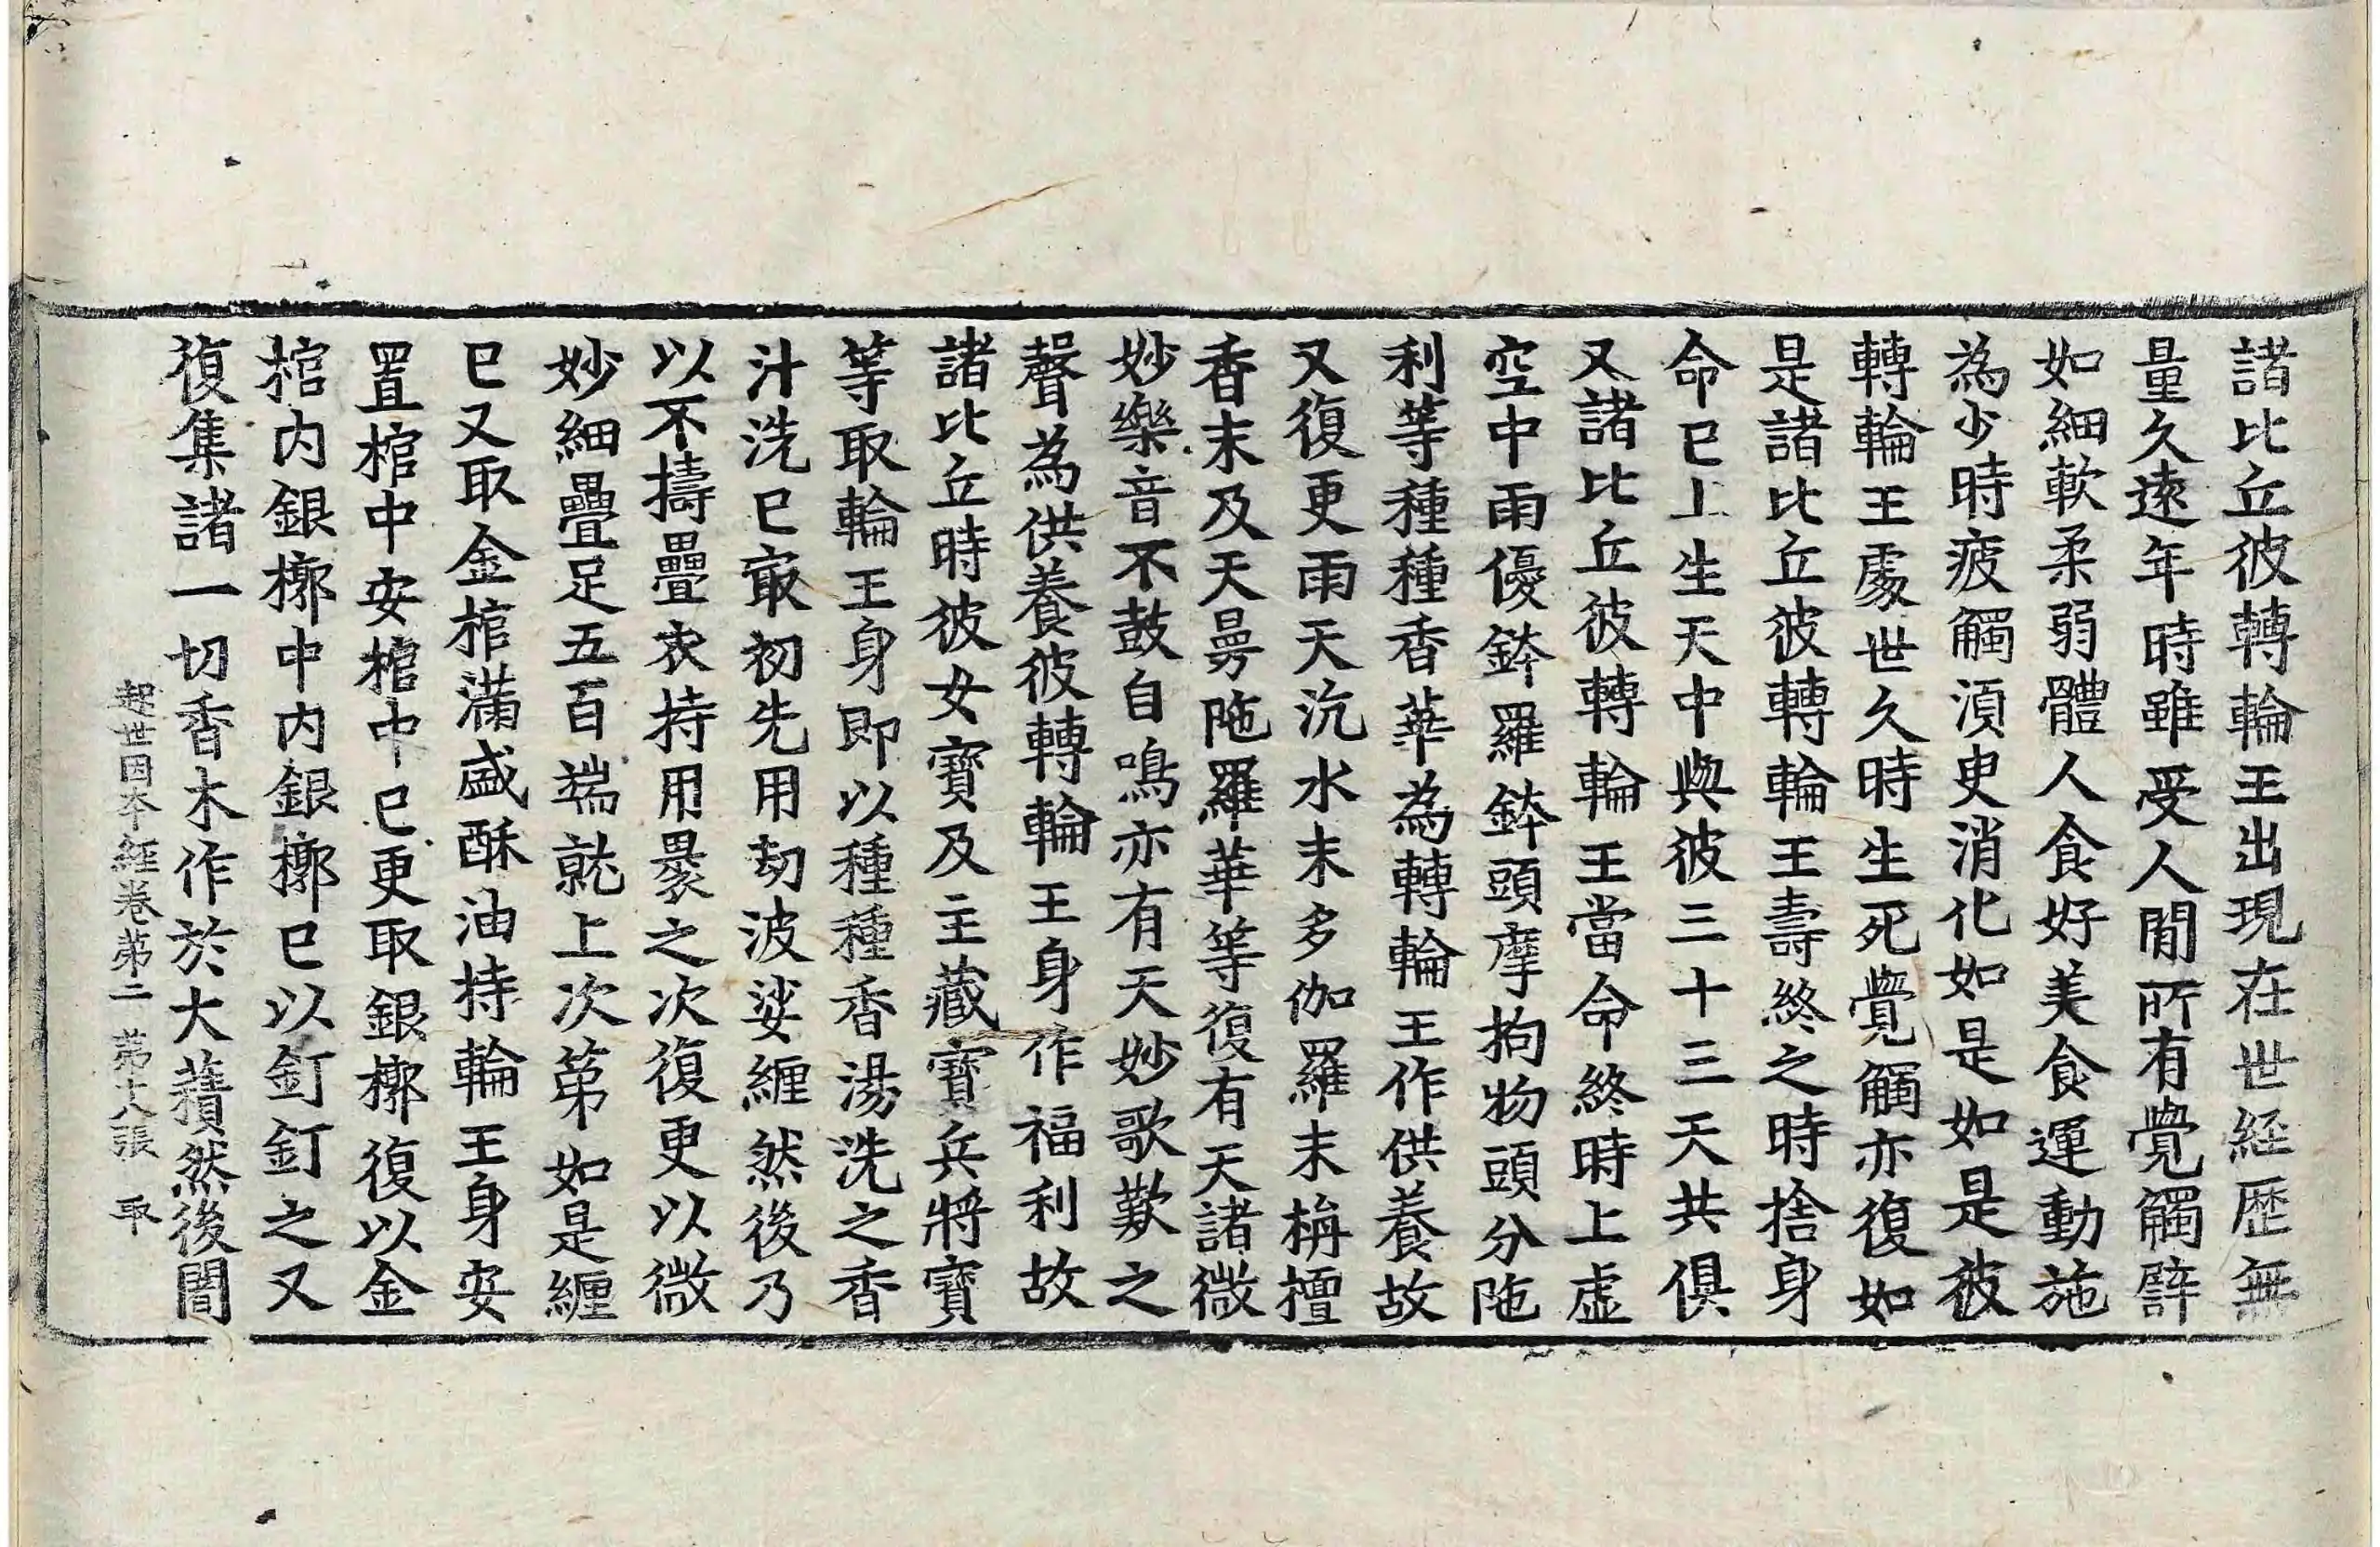 諸比丘彼轉輪王出現在世経歷無
量久遠年時雖受人閒所有覺觸辟
如細軟柔弱體人食好美食運動施
為少時疲觸須臾消化如是如是彼
轉輪王處世久時生死覺觸亦復如
是諸比丘彼轉輪王壽終之時捨身
命已上生天中與彼三十三天共俱
又諸比丘彼轉輪王當命終時上虛
空中雨優鉢羅鉢頭摩拘物頭分陁
利等種種香華為轉輪王作供養故
又復更雨天沉水末多伽羅末栴檀
香末及天曼陁羅華等復有天諸微
妙樂音不鼓自鳴亦有天妙歌歎之
聲為供養彼轉輪王身作福利故
諸比丘時彼女寶及主藏寶兵將寶
等取輪王身即以種種香湯洗之香
汁洗已㝡初先用劫波娑纏然後乃
以不擣疊衣持用裹之次復更以微
妙細疊足五百端就上次第如是纏
已又取金棺滿盛酥油持輪王身安
置棺中安棺中已更取銀槨復以金
棺内銀槨中内銀槨已以釘釘之又
復集諸一切香木作於大𧂐然後闍
起世因本經卷第二 第十八張 取